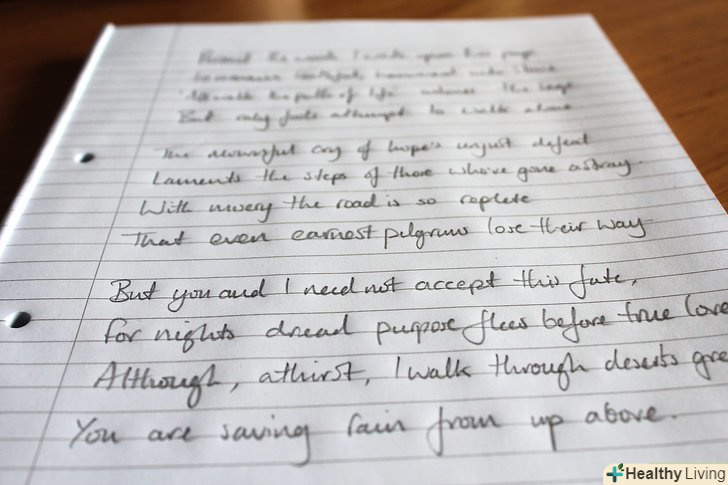 the words I write upon this page
the path of life
But only fools attempt to walk alone
The mournful cry of hope's unjust defeat
Laments the steps of those who've gone astray.
With misery the road is so replete
That even earnest pilgrims lose their way
But you and I need not accept this fate,
For nights dread purpose flees before true love
Although, athirst, I walk through deserts gre
You are saving rain from up above.
Healthy Living